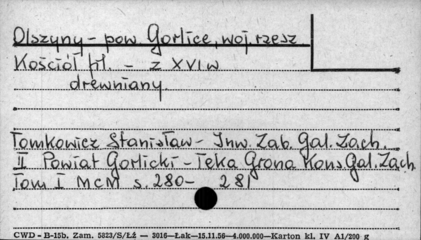 Olszyny - pow Gorlice, woj rzesz
Kościół fil. - z XVI w
drewniany.
Tomkowicz Stanisław - Inw. Zab. Gal. Zach.
II Powiat Gorlicki - Teka Grona Kons Gal. Zach
Tom I MCM s. 280 - 281
CWD - B-15b. Zam. 5823/S/Łź — 3016—Łak—15.11.56—4.000.000—Karton kl. IV A1/200 g